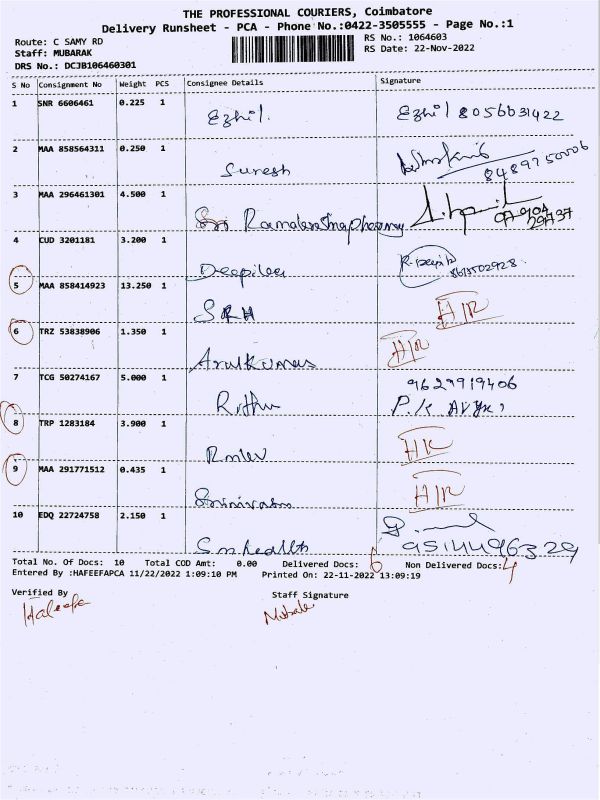 THE PROFESSIONAL COURIERS, Coimbatore
Delivery Runsheet - PCA - Phone No.:0422-3505555 - Page No.:1
Route: C SAMY RD
RS No.: 1064603
Staff: MUBARAK
RS Date: 22-Nov-2022
DRS No.: DCJB106460301
S No Consignment No Weight PCS Consignee Details Signature
1 SNR 6606461 0.225 1 Ezhil. Ezhil 8056031422
2 MAA 858564311 0.250 1 Suresh 8489750006
3 MAA 296461301 4.500 1 Sri
4 CUD 3201181 3.200 1
5 MAA 858414923 13.250 1 SRH H/R
6 TRZ 53838906 1.350 1 Arulkumar H/R
7 TCG 50274167 5.000 1 Rithu 9629919406
8 TRP 1283184 3.900 1 H/R
9 MAA 291771512 0.435 1 Srinivasan H/R
10 EDQ 22724758 2.150 1 Sm health 9514496329
Total No. Of Docs: 10 Total COD Amt: 0.00 Delivered Docs: 6 Non Delivered Docs: 4
Entered By :HAFEEFAPCA 11/22/2022 1:09:10 PM Printed On: 22-11-2022 13:09:19
Verified By Staff Signature
Hafeefa